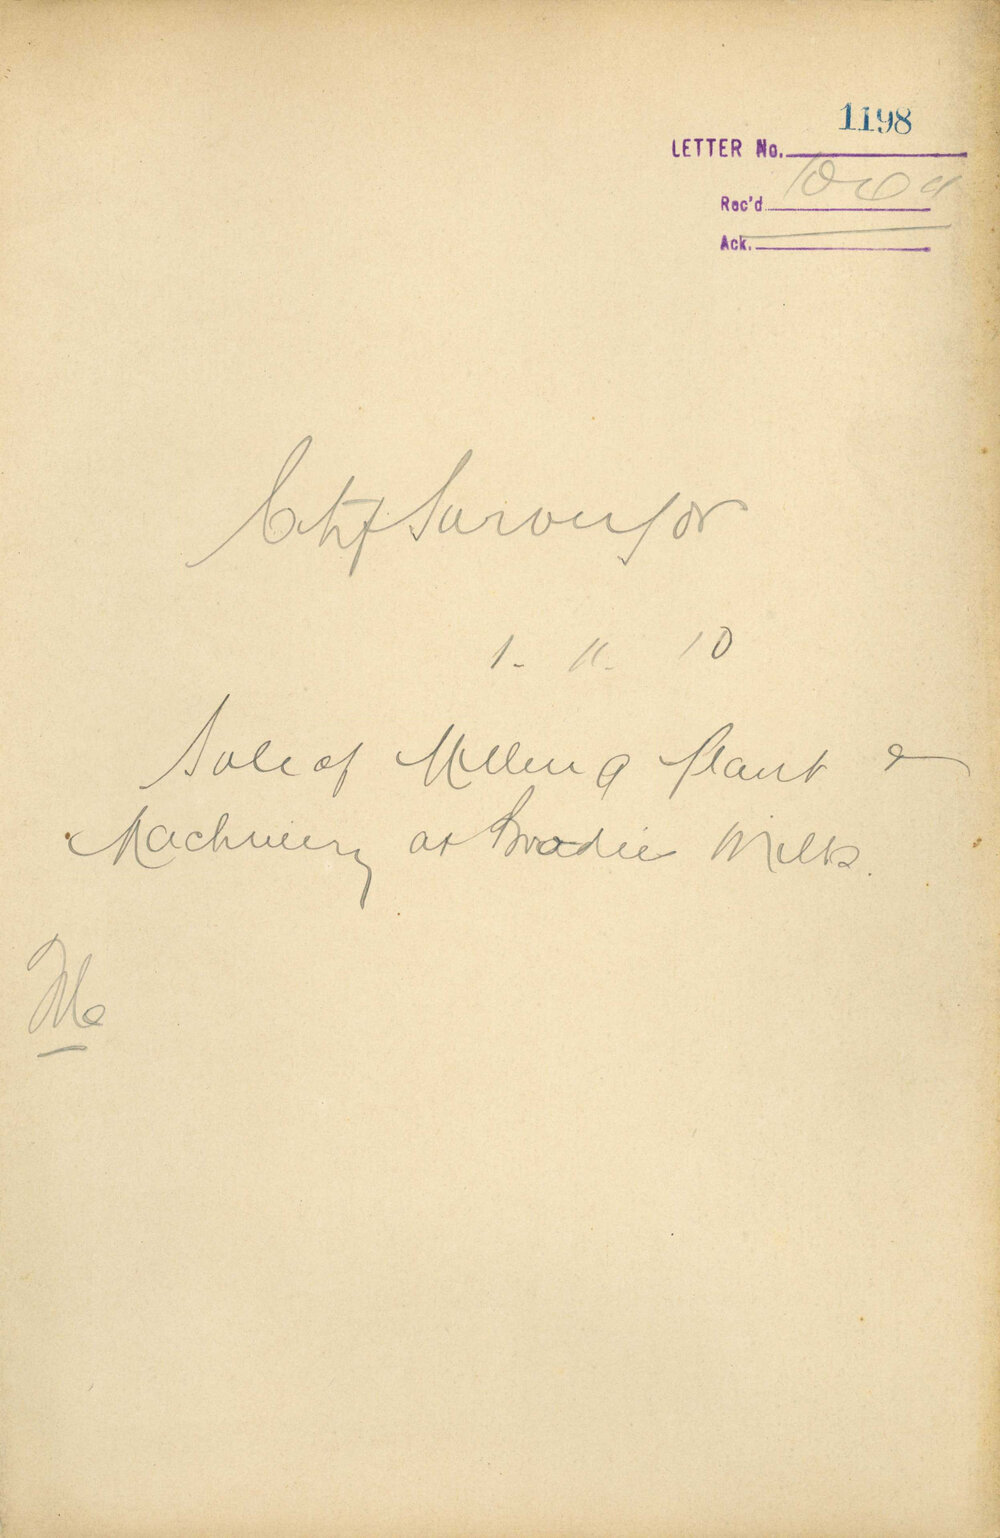 1198
LETTER No.
Rec'd
Ack.
City Surveyor
1. 11. 10
Sale of Milling Plant &
Machinery at Brodie Mills.
File